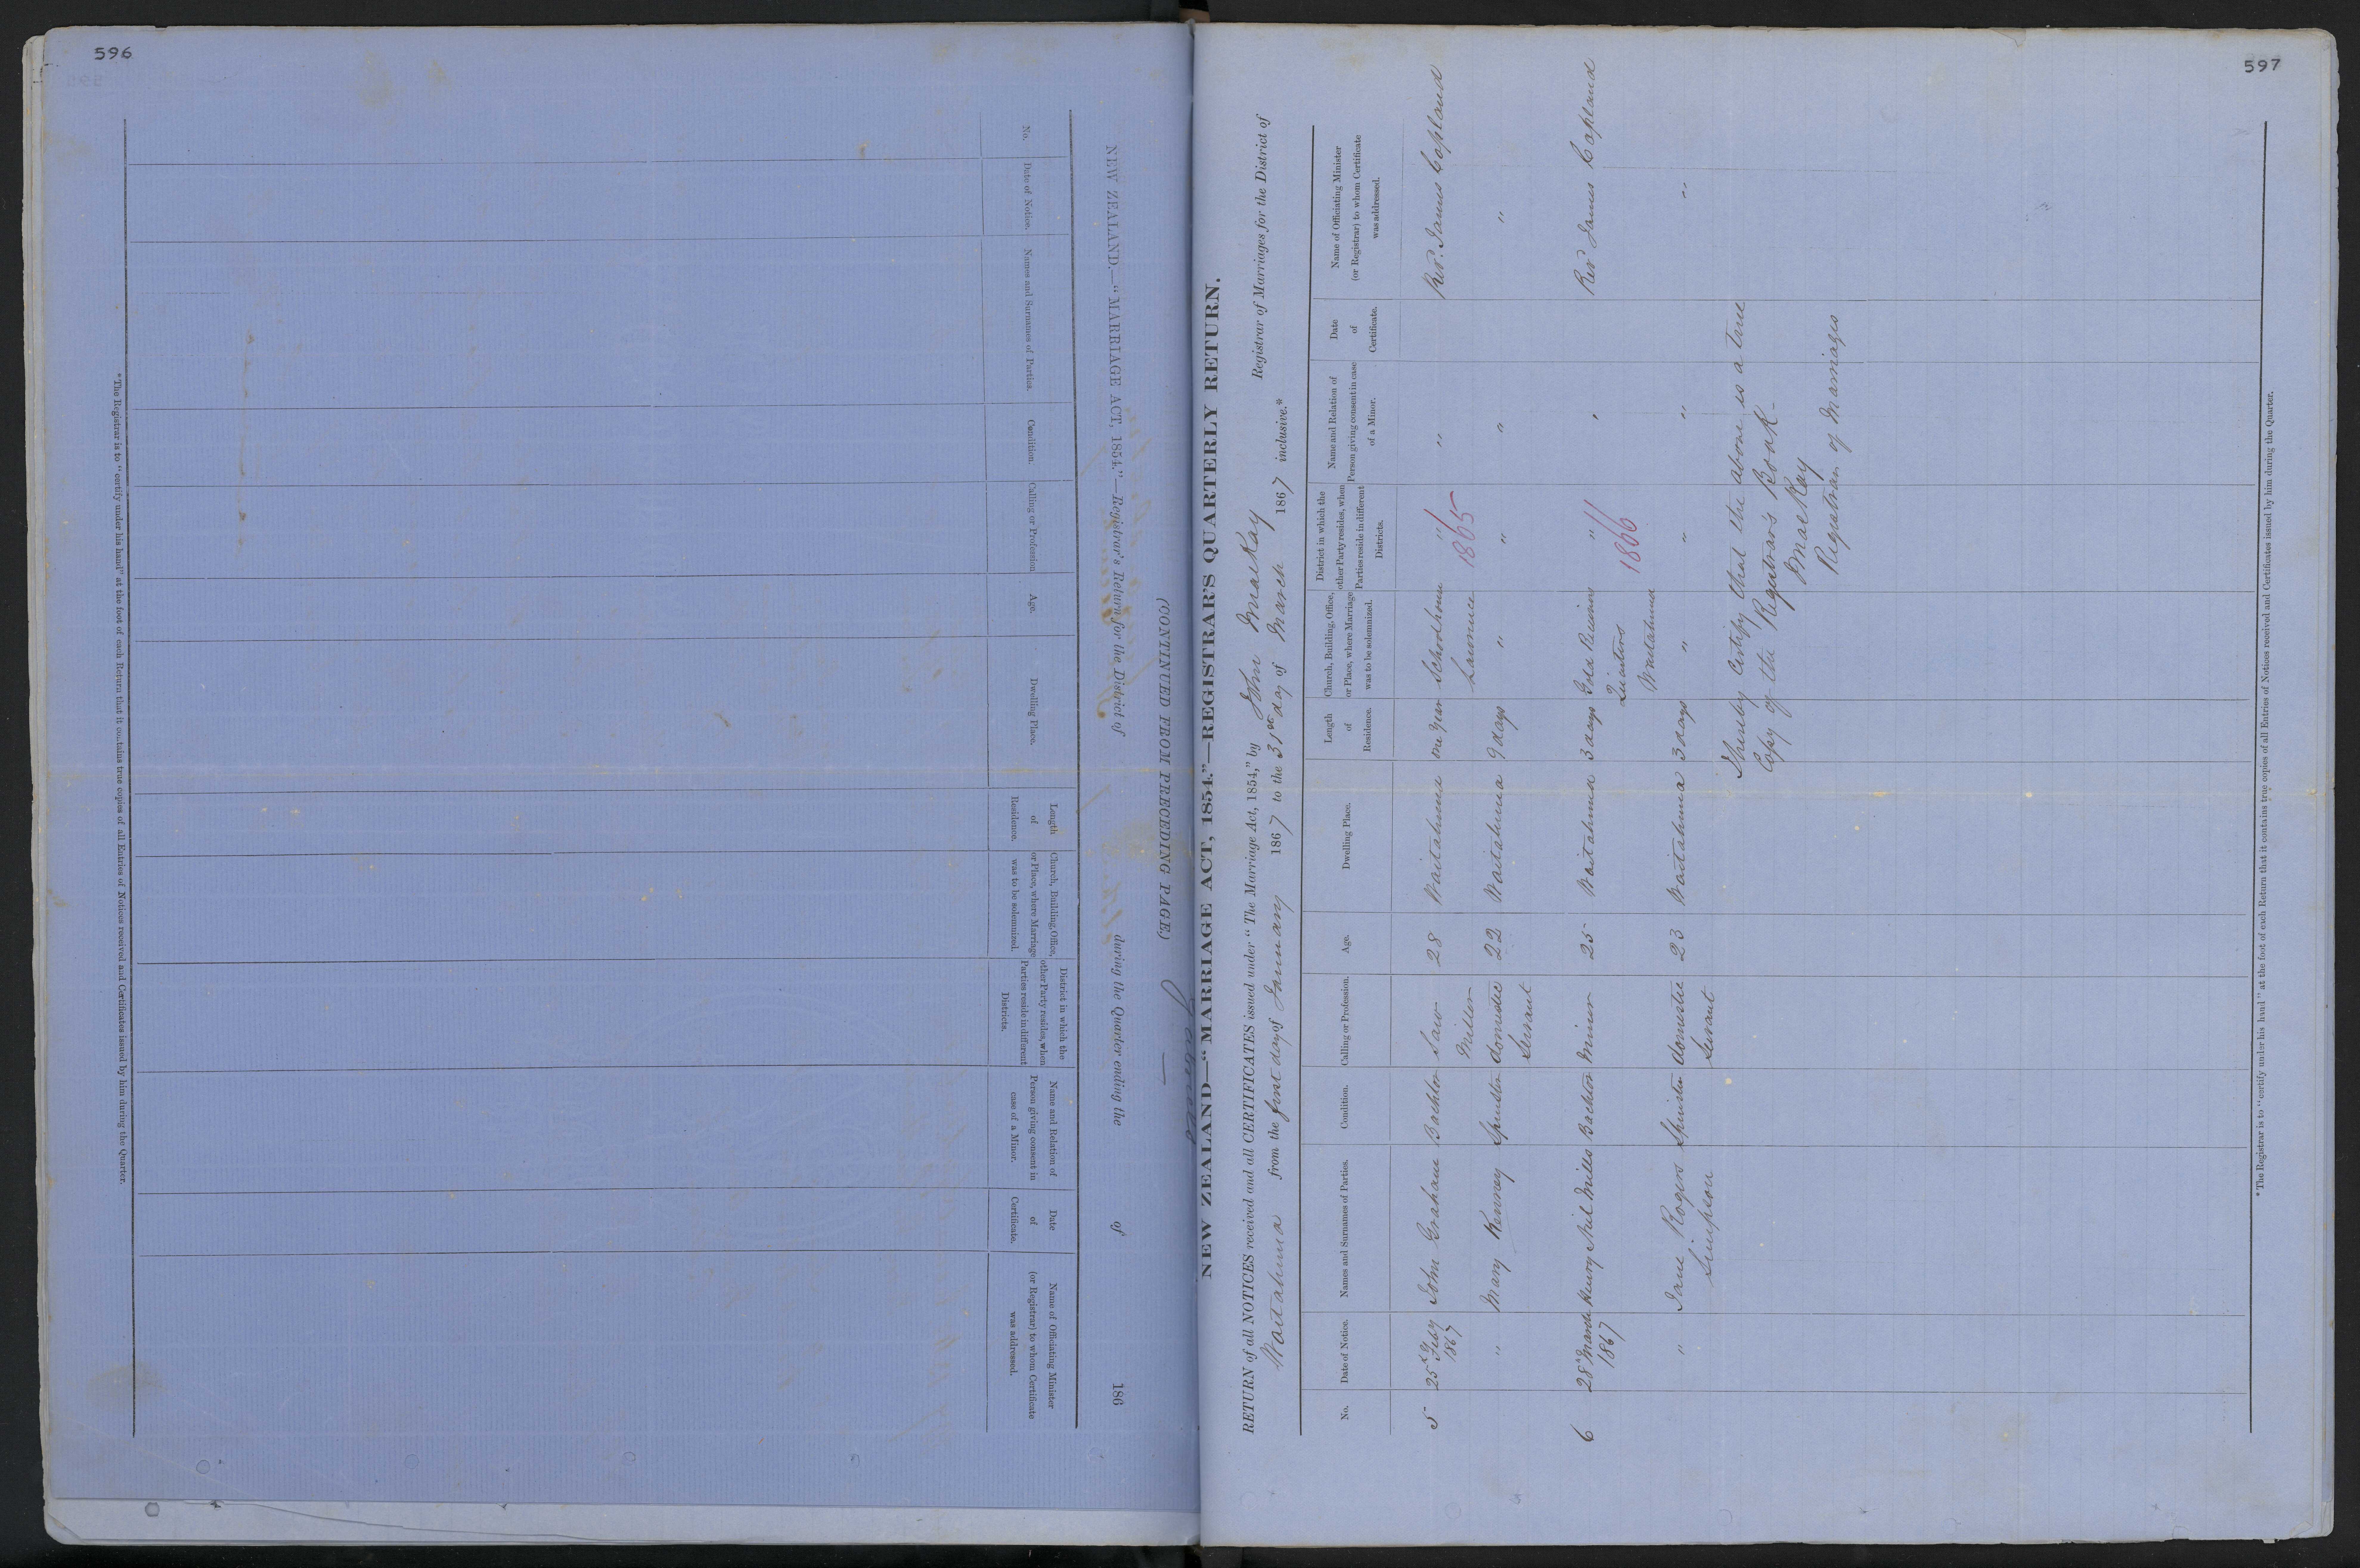 596
NEW ZEALAND.—"MARRIAGE ACT, 1854."—Registrar's Return for the District of during the Quarter ending the of 186
(CONTINUED FROM PRECEDING PAGE.)
No.
Date of Notice.
Names and Surnames of Parties.
Condition.
Calling or Profession
Age.
Dwelling Place.
Length
of
Residence.
Church, Building, Office,
or Place, where Marriage
was to be solemnized.
District in which the
other Party resides, when
Parties reside in different
Districts.
Name and Relation of
Person giving consent in
case of a Minor.
Date
of
Certificate.
Name of Officiating Minister
(or Registrar) to whom Certificate
was addressed.
* The Registrar is to "certify under his hand" at the foot of each Return that it contains true copies of all Entries of Notices received and Certificates issued by him during the Quarter.
597
NEW ZEALAND—"MARRIAGE ACT, 1854."—REGISTRAR'S QUARTERLY RETURN.
RETURN of all NOTICES received and all CERTIFICATES issued under "The Marriage Act, 1854," by John MacKay Registrar of Marriages for the District of
Waitahuna from the first day of January 1867 to the 31st day of March 1867 inclusive.*
No.
Date of Notice.
Names and Surnames of Parties.
Condition.
Calling or Profession
Age.
Dwelling Place.
Length
of
Residence.
Church, Building, Office,
or Place, where Marriage
was to be solemnized.
District in which the
other Party resides, when
Parties reside in different
Districts.
Name and Relation of
Person giving consent in case
of a Minor.
Date
of
Certificate.
Name of Officiating Minister
(or Registrar) to whom Certificate
was addressed.
5 25th Feby John Graham Bachelor Saw 28 Waitahuna one year Schoolhouse " " Revd. James Copland
1867 Miller Lawrence 1865
" Mary Kenney Spinster domestic 22 Waitahuna 9 days " " " "
Servant
6 28th March Henry Niel Mills Bachelor Miner 25 Waitahuna 3 days Gold Receivers " " Revd James Copland
1867 Quarters 1866
Waitahuna
" Jane Rogers Spinster domestic 23 Waitahuna 3 days " " " "
Simpson Servant
I hereby certify that the above is a true
Copy of the Registrars Book
J MacKay
Registrar of Marriages
* The Registrar is to "certify under his hand" at the foot of each Return that it contains true copies of all Entries of Notices received and Certificates issued by him during the Quarter.